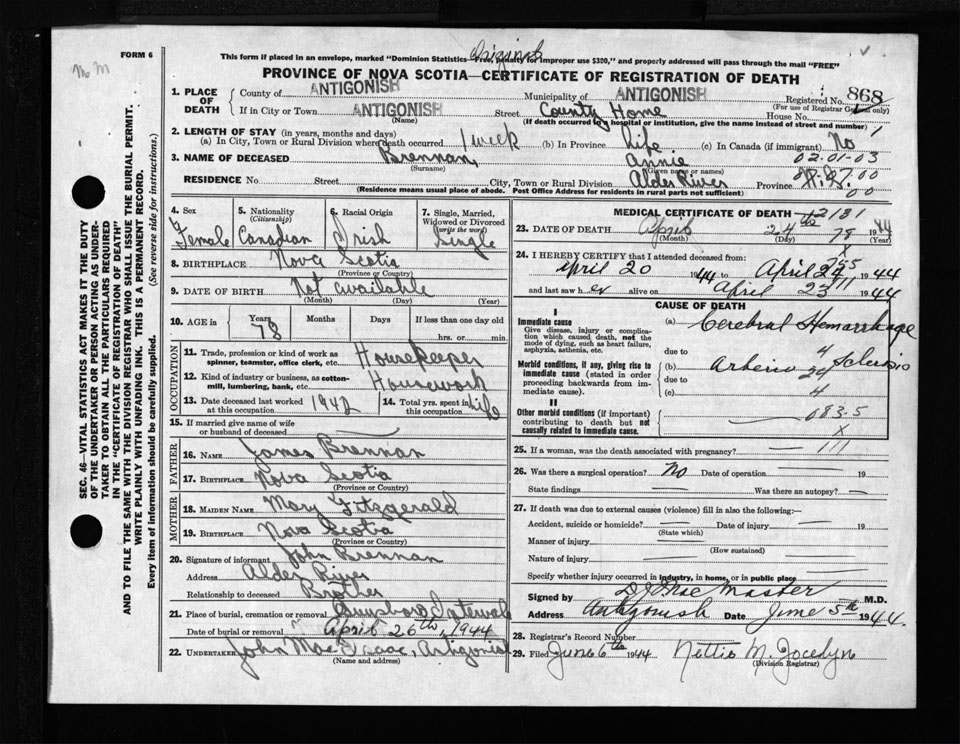 FORM 6
This form if placed in an envelope, marked "Dominion Statistics—Free, penalty for improper use $300," and properly addressed will pass through the mail "FREE"
Original
PROVINCE OF NOVA SCOTIA—CERTIFICATE OF REGISTRATION OF DEATH
1. PLACE OF DEATH
County of ANTIGONISH Municipality of ANTIGONISH Registered No. 868
(For use of Registrar General only)
If in City or Town ANTIGONISH Street County Home House No.
(Name) (If death occurred in a hospital or institution, give the name instead of street and number)
2. LENGTH OF STAY (in years, months and days)
(a) In City, Town or Rural Division where death occurred 1 week (b) In Province Life (c) In Canada (if immigrant) No
3. NAME OF DECEASED Brennan, Annie 02-01-03
(Surname) (Given name or names)
RESIDENCE No. Street City, Town or Rural Division Alder River Province N.S.
(Residence means usual place of abode. Post Office Address for residents in rural parts not sufficient)
4. Sex Female
5. Nationality (Citizenship) Canadian
6. Racial Origin Irish
7. Single, Married, Widowed or Divorced (write the word) Single
8. BIRTHPLACE Nova Scotia
(Province or Country)
9. DATE OF BIRTH Not available
(Month) (Day) (Year)
10. AGE in Years Months Days If less than one day old
78 hrs. or min.
OCCUPATION
11. Trade, profession or kind of work as spinner, teamster, office clerk, etc. Housekeeper
12. Kind of industry or business, as cotton-mill, lumbering, bank, etc. Housework
13. Date deceased last worked at this occupation 1942 14. Total yrs. spent in this occupation Life
15. If married give name of wife or husband of deceased
FATHER
16. NAME James Brennan
17. BIRTHPLACE Nova Scotia
(Province or Country)
MOTHER
18. MAIDEN NAME Mary Fitzgerald
19. BIRTHPLACE Nova Scotia
(Province or Country)
20. Signature of informant John Brennan
Address Alder River
Relationship to deceased Brother
21. Place of burial, cremation or removal
Date of burial or removal April 26th, 1944
22. UNDERTAKER John MacIsaac, Antigonish
(Name and address)
MEDICAL CERTIFICATE OF DEATH
23. DATE OF DEATH April 24th 1944
(Month) (Day) (Year)
78
24. I HEREBY CERTIFY that I attended deceased from:
April 20 1944 to April 24 1944
and last saw her alive on April 23 1944
CAUSE OF DEATH
I
Immediate cause
Give disease, injury or complication which caused death, not the mode of dying, such as heart failure, asphyxia, asthenia, etc.
(a) Cerebral Hemorrhage
due to
Morbid conditions, if any, giving rise to immediate cause (stated in order proceeding backwards from immediate cause).
(b) Arterio Sclerosis
due to
(c)
II
Other morbid conditions (if important) contributing to death but not causally related to immediate cause.
683.5
X
25. If a woman, was the death associated with pregnancy?
26. Was there a surgical operation? No Date of operation 19
State findings Was there an autopsy?
27. If death was due to external causes (violence) fill in also the following:—
Accident, suicide or homicide? Date of injury 19
(State which)
Manner of injury
(How sustained)
Nature of injury
Specify whether injury occurred in industry, in home, or in public place
Signed by MacMaster M.D.
Address Antigonish Date June 5th 1944.
28. Registrar's Record Number
29. Filed June 6th 1944 Nettie M. Jocelyn
(Division Registrar)
SEC. 46—VITAL STATISTICS ACT MAKES IT THE DUTY
OF THE UNDERTAKER OR PERSON ACTING AS UNDER-
TAKER TO OBTAIN ALL THE PARTICULARS REQUIRED
IN THE "CERTIFICATE OF REGISTRATION OF DEATH"
AND TO FILE THE SAME WITH THE DIVISION REGISTRAR WHO SHALL ISSUE THE BURIAL PERMIT.
WRITE PLAINLY WITH UNFADING INK. THIS IS A PERMANENT RECORD.
Every item of information should be carefully supplied. (See reverse side for instructions.)